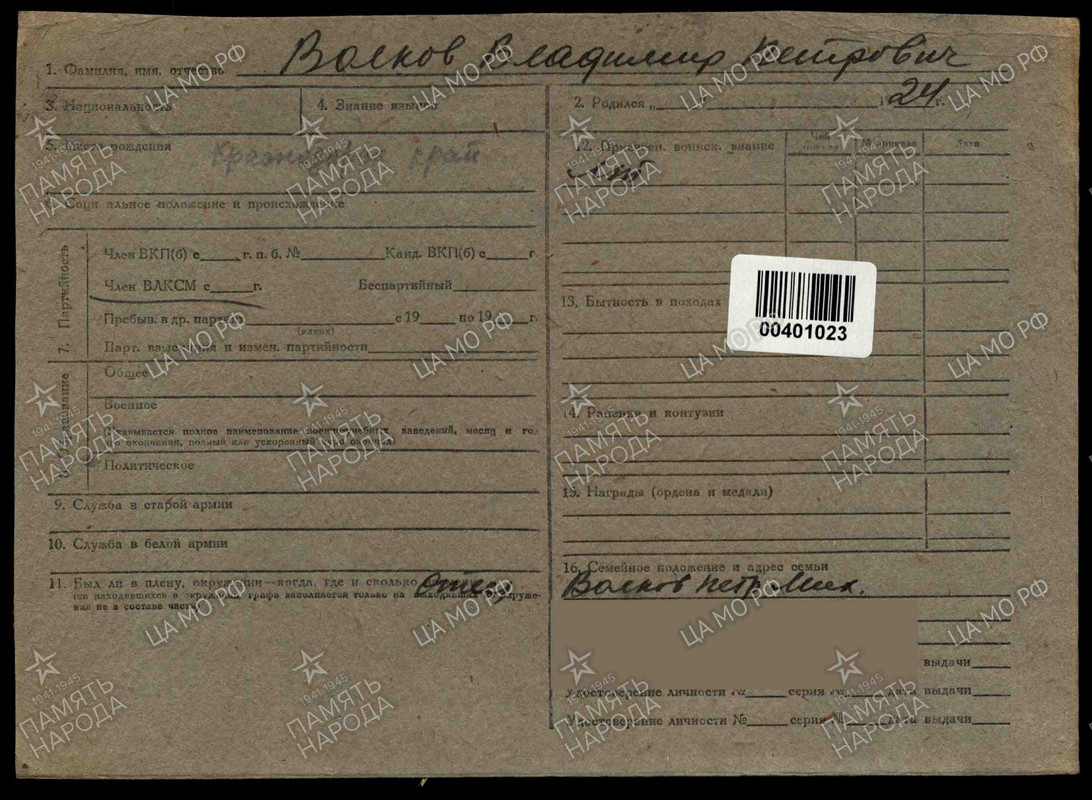 1. Фамилия, имя, отчество Волков Владимир Петрович
3. Национальность
4. Знание языков
5. Место рождения край
6. Социальное положение и происхождение
7. Партийность
Член ВКП(б) с г. п. б. № Канд. ВКП(б) с г.
Член ВЛКСМ с г. Беспартийный
Пребыв. в др. партиях с 19 по 19 г.
(каких)
Парт. взыскания и измен. партийности
8. Образование
Общее
Военное
(Указывается полное наименование военно-учебных заведений, месяц и год
его окончания, полный или ускоренный курс окончил)
Политическое
9. Служба в старой армии
10. Служба в белой армии
11. Был ли в плену, окружении—когда, где и сколько
(на находившихся в окружении графа заполняется только на выходивших из окруже-
ния не в составе части)
2. Родился „ 24 г.
12. Присвоен. воинск. звание
№ приказа
Дата
мл
00401023
13. Бытность в походах
14. Ранения и контузии
15. Награды (ордена и медали)
16. Семейное положение и адрес семьи
Отец
Волков Петр Мих.
выдачи
Удостоверение личности № серия № дата выдачи
Удостоверение личности № серия № дата выдачи
1941-1945
ПАМЯТЬ НАРОДА
ЦА МО РФ